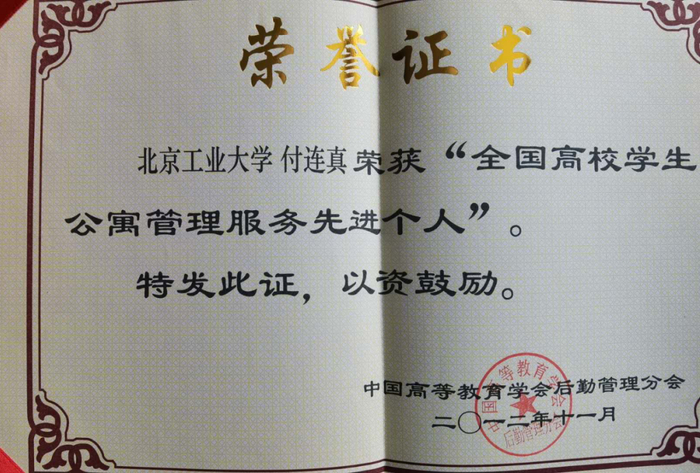 荣誉证书
北京工业大学 付连真荣获“全国高校学生
公寓管理服务先进个人”。
特发此证，以资鼓励。
中国高等教育学会后勤管理分会
二〇一二年十一月
中国高等教育学会
后勤管理分会